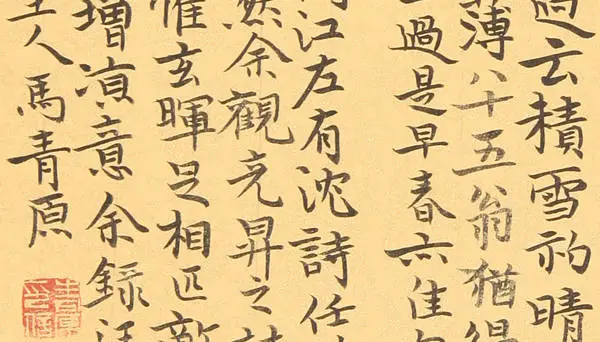 過云積雪初晴
薄八十五翁猶得
過是早春亦佳
江左有沈詩任
然余觀彦昇之
惟玄暉足相匹敵
增演意余錄
人馬青原